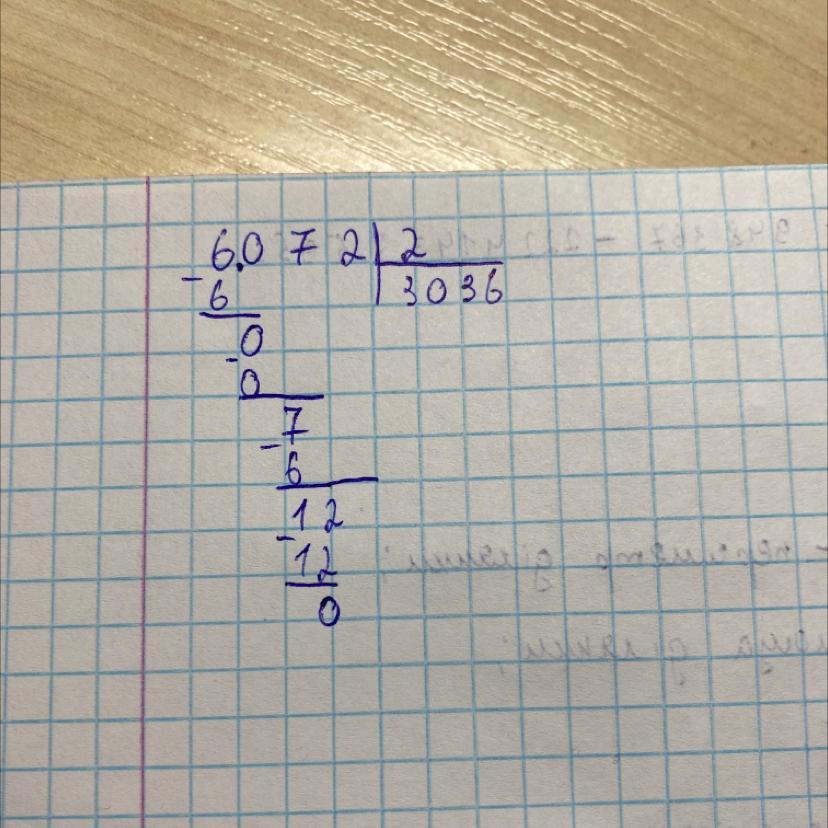 6.0 7 2 | 2
- 6 | 3036
0
- 0
7
- 6
12
- 12
0